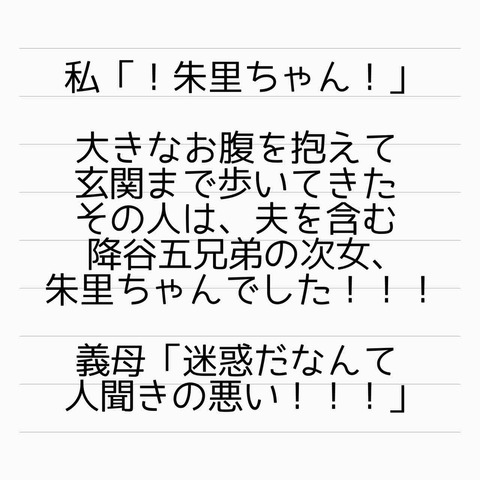 私「！朱里ちゃん！」
大きなお腹を抱えて
玄関まで歩いてきた
その人は、夫を含む
降谷五兄弟の次女、
朱里ちゃんでした！！！
義母「迷惑だなんて
人聞きの悪い！！！」